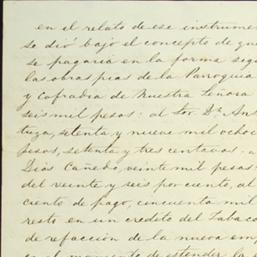 en el relato de ese instrume
se dió bajo el concepto de que
se pagaria en la forma sigu
las obras pias de la Parroquia
y Cofradia de Nuestra Señora
seis mil pesos: al Sor. Dn. An
tuza, setenta y nueve mil ocho
pesos, setenta y tres centavos: a
Dios Cañedo, veinte mil pesos
del veinte y seis por ciento, al
ciento de pago, cincuenta mil
resto en un credito del Tabaco
de refaccion de la nueva em
en el momento de estender la